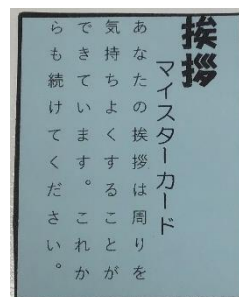 挨拶
マイスターカード
あなたの挨拶は周りを
気持ちよくすることが
できています。これか
らも続けてください。